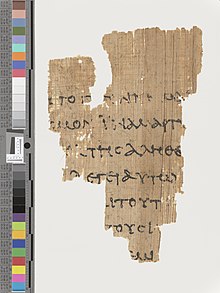 ΤΟ
ϹΜΟΝ ΙΝΑ ΜΑΡΤΥ
ΤΗϹ ΑΛΗΘΕ
ΛΕΓΕΙ ΑΥΤΩ
Ι ΤΟΥΤ
ΤΟΥϹ Ι
ΜΙ